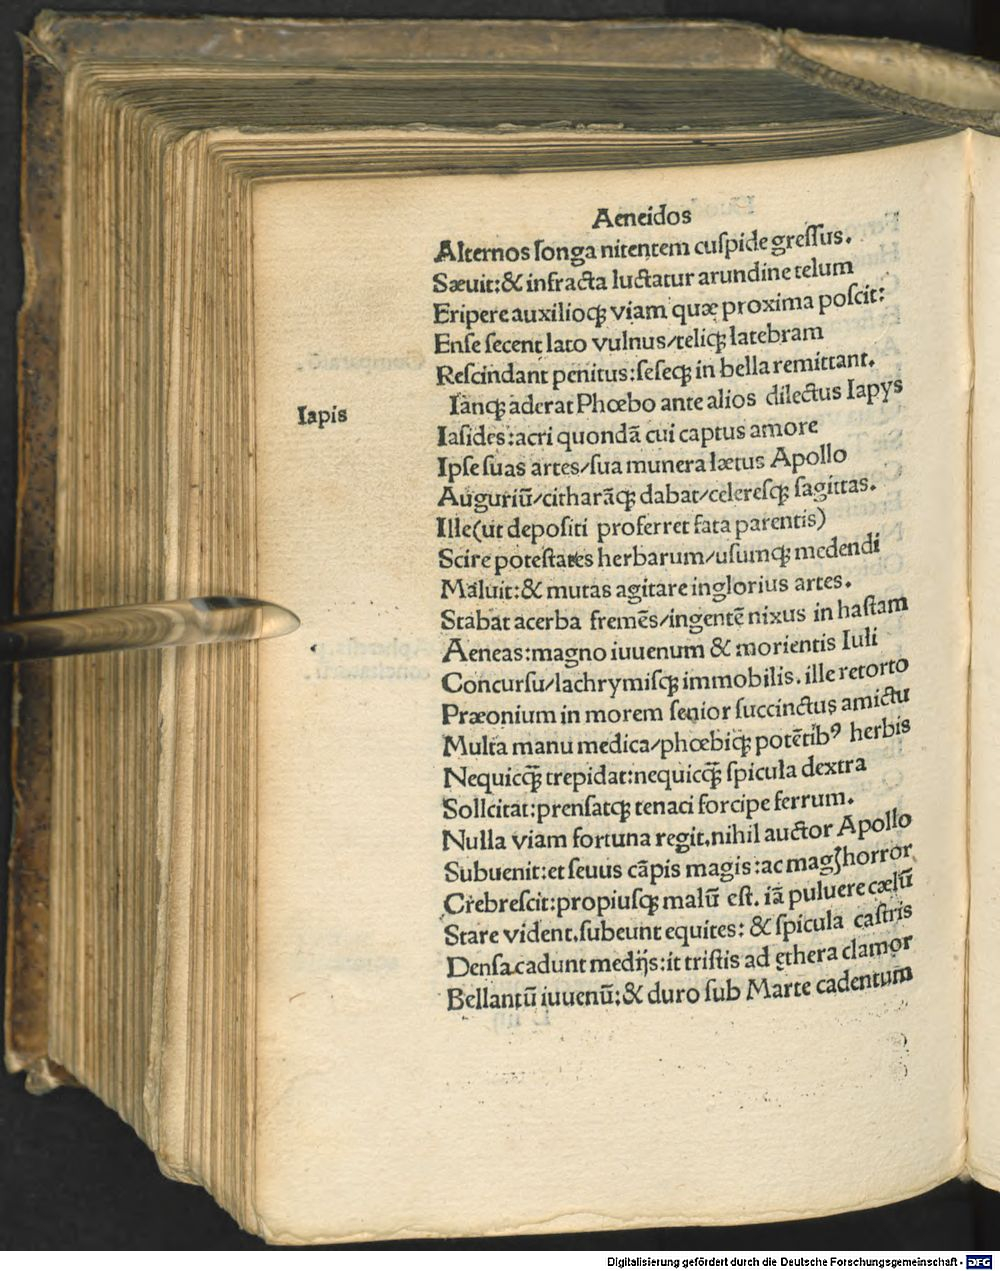 Aeneidos
Alternos longa nitentem cuſpide greſſus.
Sæuit:& infracta luctatur arundine telum
Eripere auxilioqꝫ viam quæ proxima poſcit:
Enſe ſecent lato vulnus/teliqꝫ latebram
Reſcindant penitus:ſeſeqꝫ in bella remittant.
Iānqꝫ aderat Phœbo ante alios dilectus Iapys
Iapis
Iaſides:acri quondā cui captus amore
Ipſe ſuas artes/ſua munera lætus Apollo
Auguriū/citharāqꝫ dabat/celereſqꝫ ſagittas.
Ille(ut depoſiti proferret fata parentis)
Scire poteſtates herbarum/uſumqꝫ medendi
Maluit:& mutas agitare inglorius artes.
Stabat acerba fremēs/ingentē nixus in haſtam
Aeneas:magno iuuenum & morientis Iuli
Concurſu/lachrymiſqꝫ immobilis. ille retorto
Præonium in morem ſenior ſuccinctus amictu
Multa manu medica/phœbiqꝫ potētibꝰ herbis
Nequicqꝫ̄ trepidat:nequicqꝫ̄ ſpicula dextra
Sollcitat:prenſatqꝫ tenaci forcipe ferrum.
Nulla viam fortuna regit.nihil auctor Apollo
Subuenit:et ſeuus cāpis magis:ac magꝭ horror
Crebreſcit:propiuſqꝫ malū eſt. iā puluere cælū
Stare vident.ſubeunt equites: & ſpicula caſtris
Denſa cadunt medijs:it triſtis ad ęthera clamor
Bellantū iuuenū:& duro ſub Marte cadentum
Digitalisierung gefördert durch die Deutsche Forschungsgemeinschaft - DFG